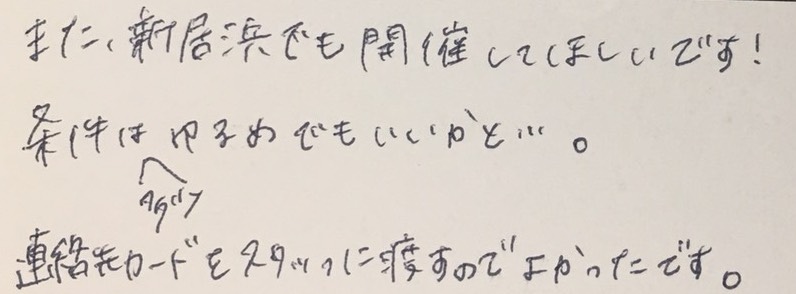 また、新居浜でも開催してほしいです!
条件はゆるめでもいいかと…。
連絡先カードをスタッフに渡すのでよかったです。